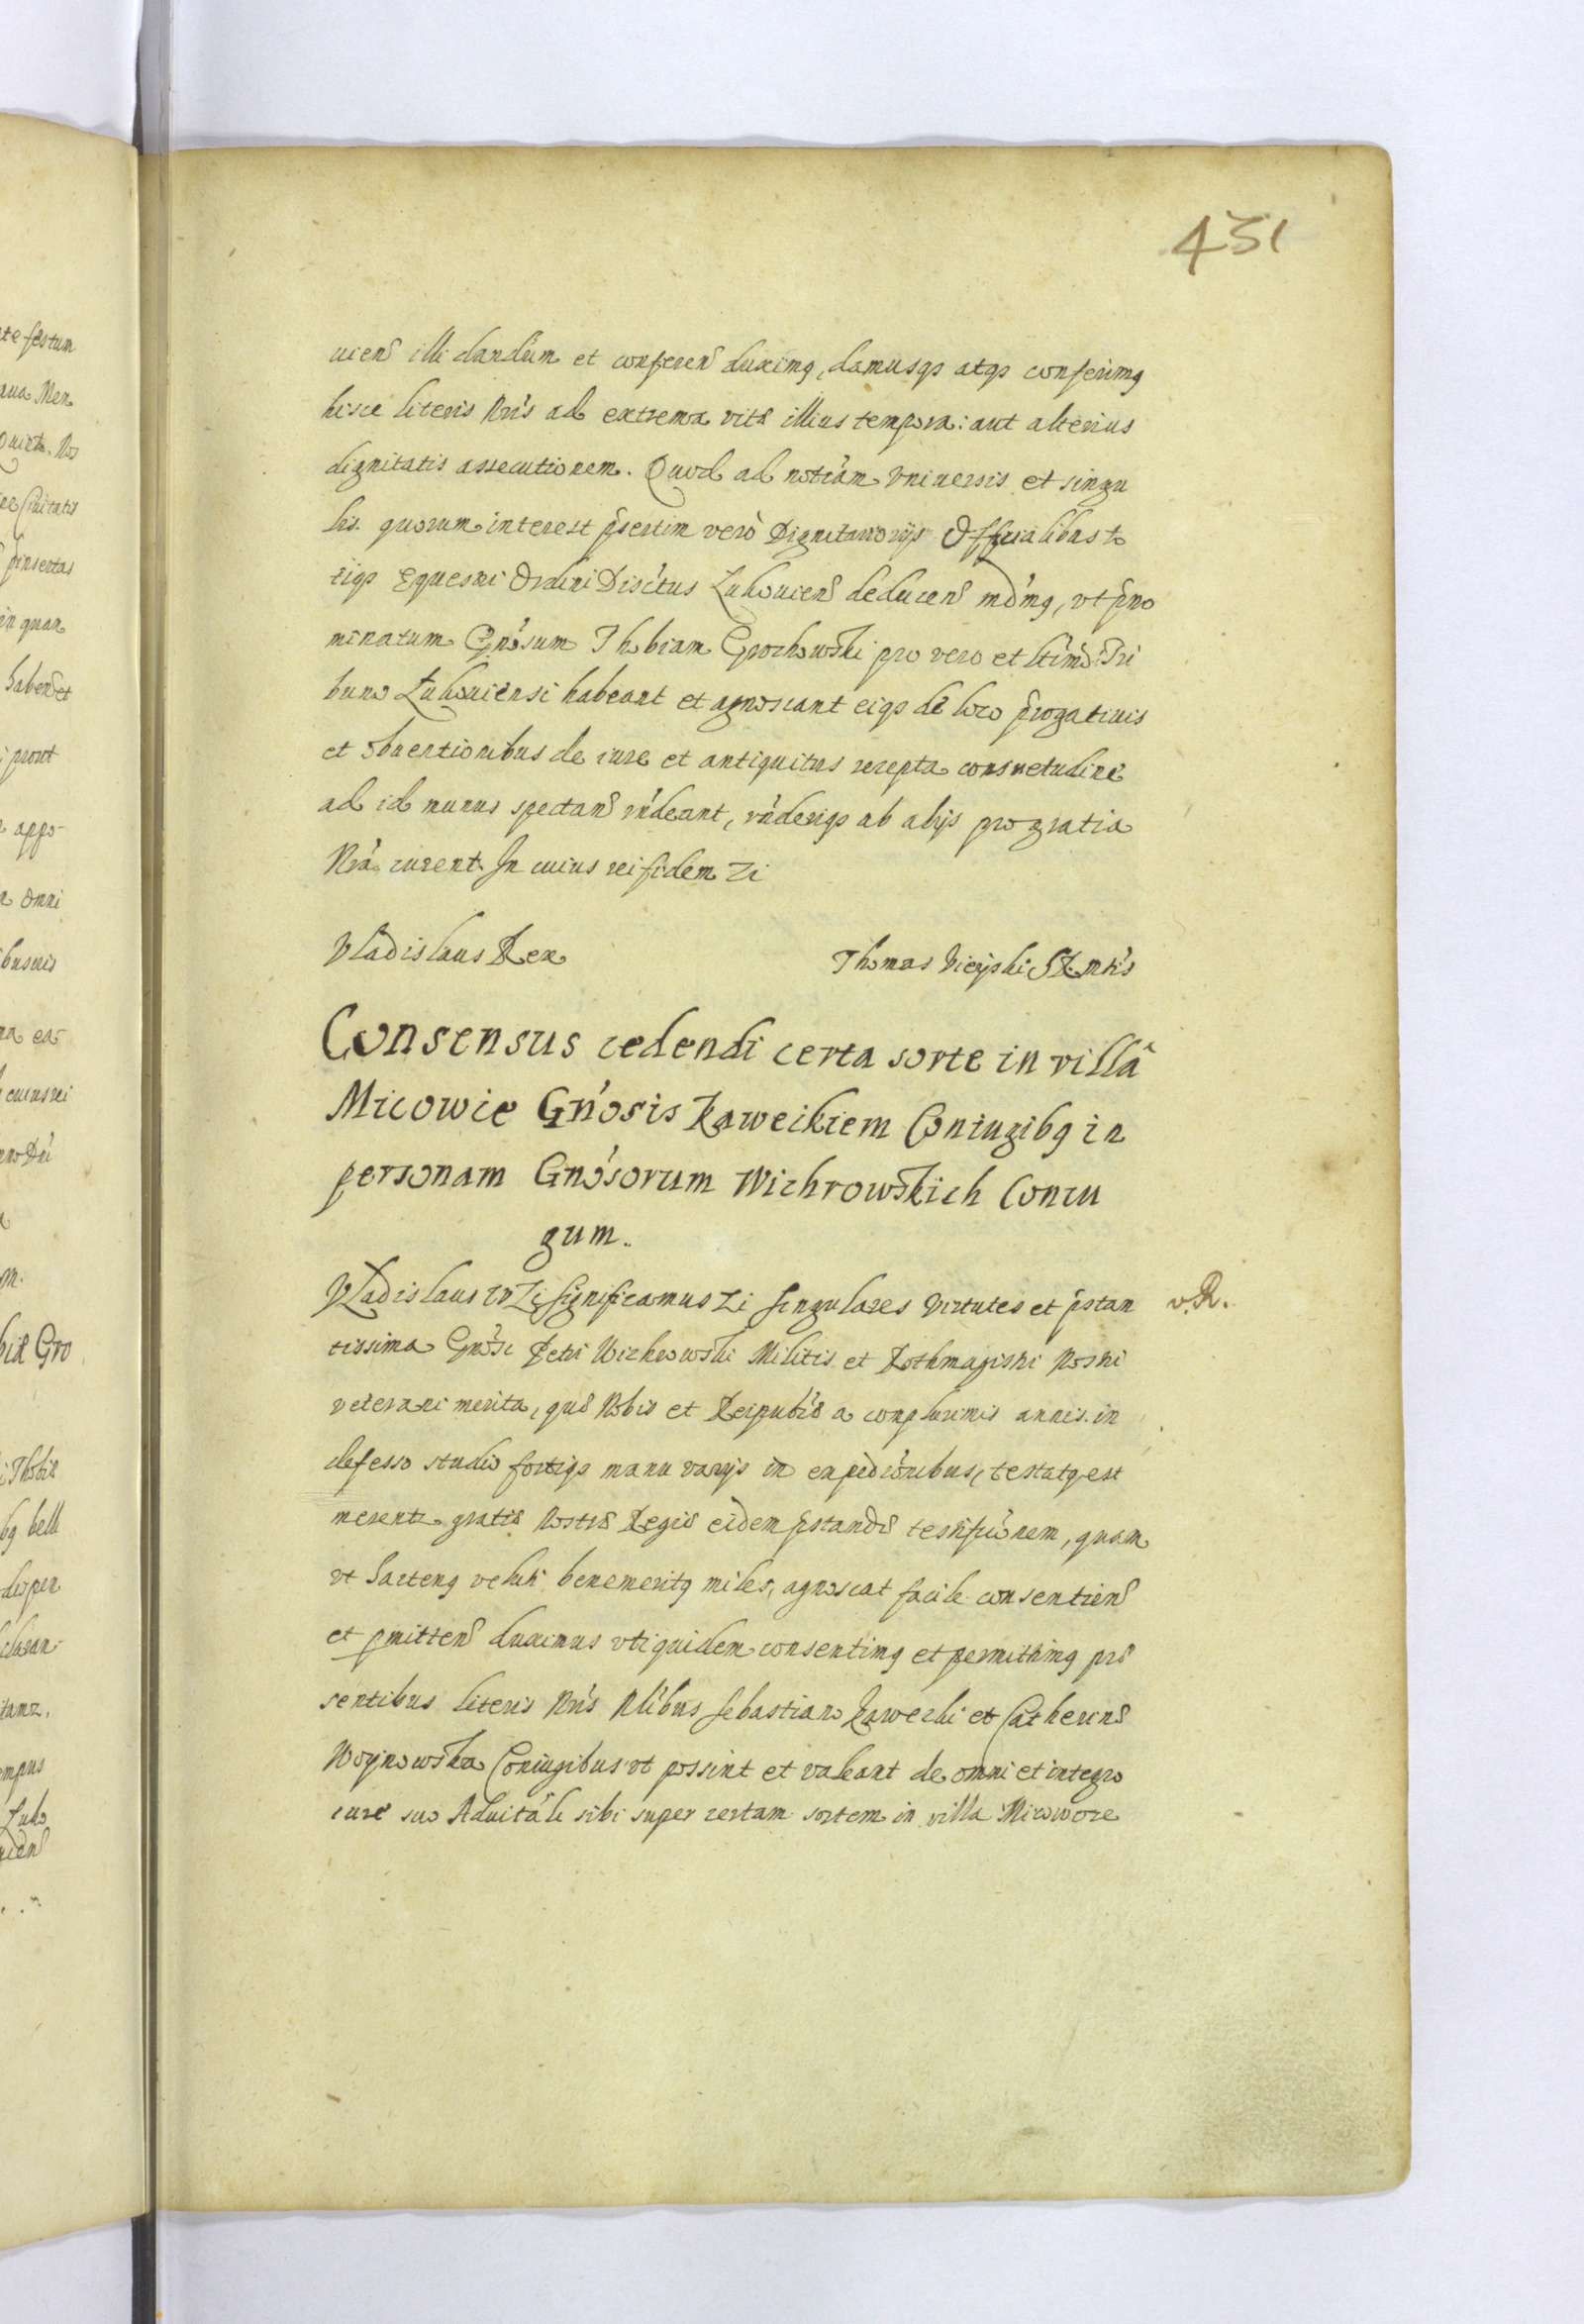 431
uienẽ illi dandum et conferenẽ duximꝯ, damusqꝫ atqꝫ conferimꝯ
hisce literis Nr̃is ad extrema vitæ illius tempora: aut alterius
dignitatis assecutionem. Quod ad notiãm vniuersis et singu
lis quorum interest p̃sertim verò Dignitarorijs Offficialibus to
tiqꝫ Equestri Ordini Disc̃tus Lukouienẽ deducenẽ mdm̃ꝯ, vt p̃no
minatum Gn̄osum Thobiam Grochowski pro vero et ltim̃o Tri
buno Łukouiensi habeant et agnoscant eiqꝫ de loco p̃rogatiuis
et obuentionibus de iure et antiquitus recepta consuetudine
ad id munus spectanẽ rñdeant, rñderiqꝫ ab alijs pro gratia
Nrã curent. In cuius rei fidem Zi
Vladislaus Rex
Thomas Vieyski SRMtis
Consensus cedendi certa sorte in villâ
Micowie Gn̄osis Kaweckiem Coniugibꝯ in
personam Gn̄osorum Wichrowskich Coniu
gum.
Vladislaus IV Zi significamus Zi singulares virtutes et p̃stan
v. R.
tissima Gn̄osi Petri Wichrowski Militis et Rothmagistri Nostri
veterani merita, quæ Nobis et Reipublĩcæ a complurimis annis in
defesso studio fortiqꝫ manu varijs in expediõnibus, testatꝯ est
merenti gratiæ Nostræ Regiæ eidem p̃standæ testificiõnem, quam
vt hactenꝯ veluti benemeritꝯ miles, agnoscat facile consentienẽ
et pmittenẽ duximus vti quidem consentimꝯ et permittimꝯ præ
sentibus literis Nr̃is Nlibus Sebastiano Kawecki et Catherinæ
Woynowska Coniugibus vt possint et valeant de omni et integro
iure suo Aduitãli sibi super certam sortem in villa Micowoie